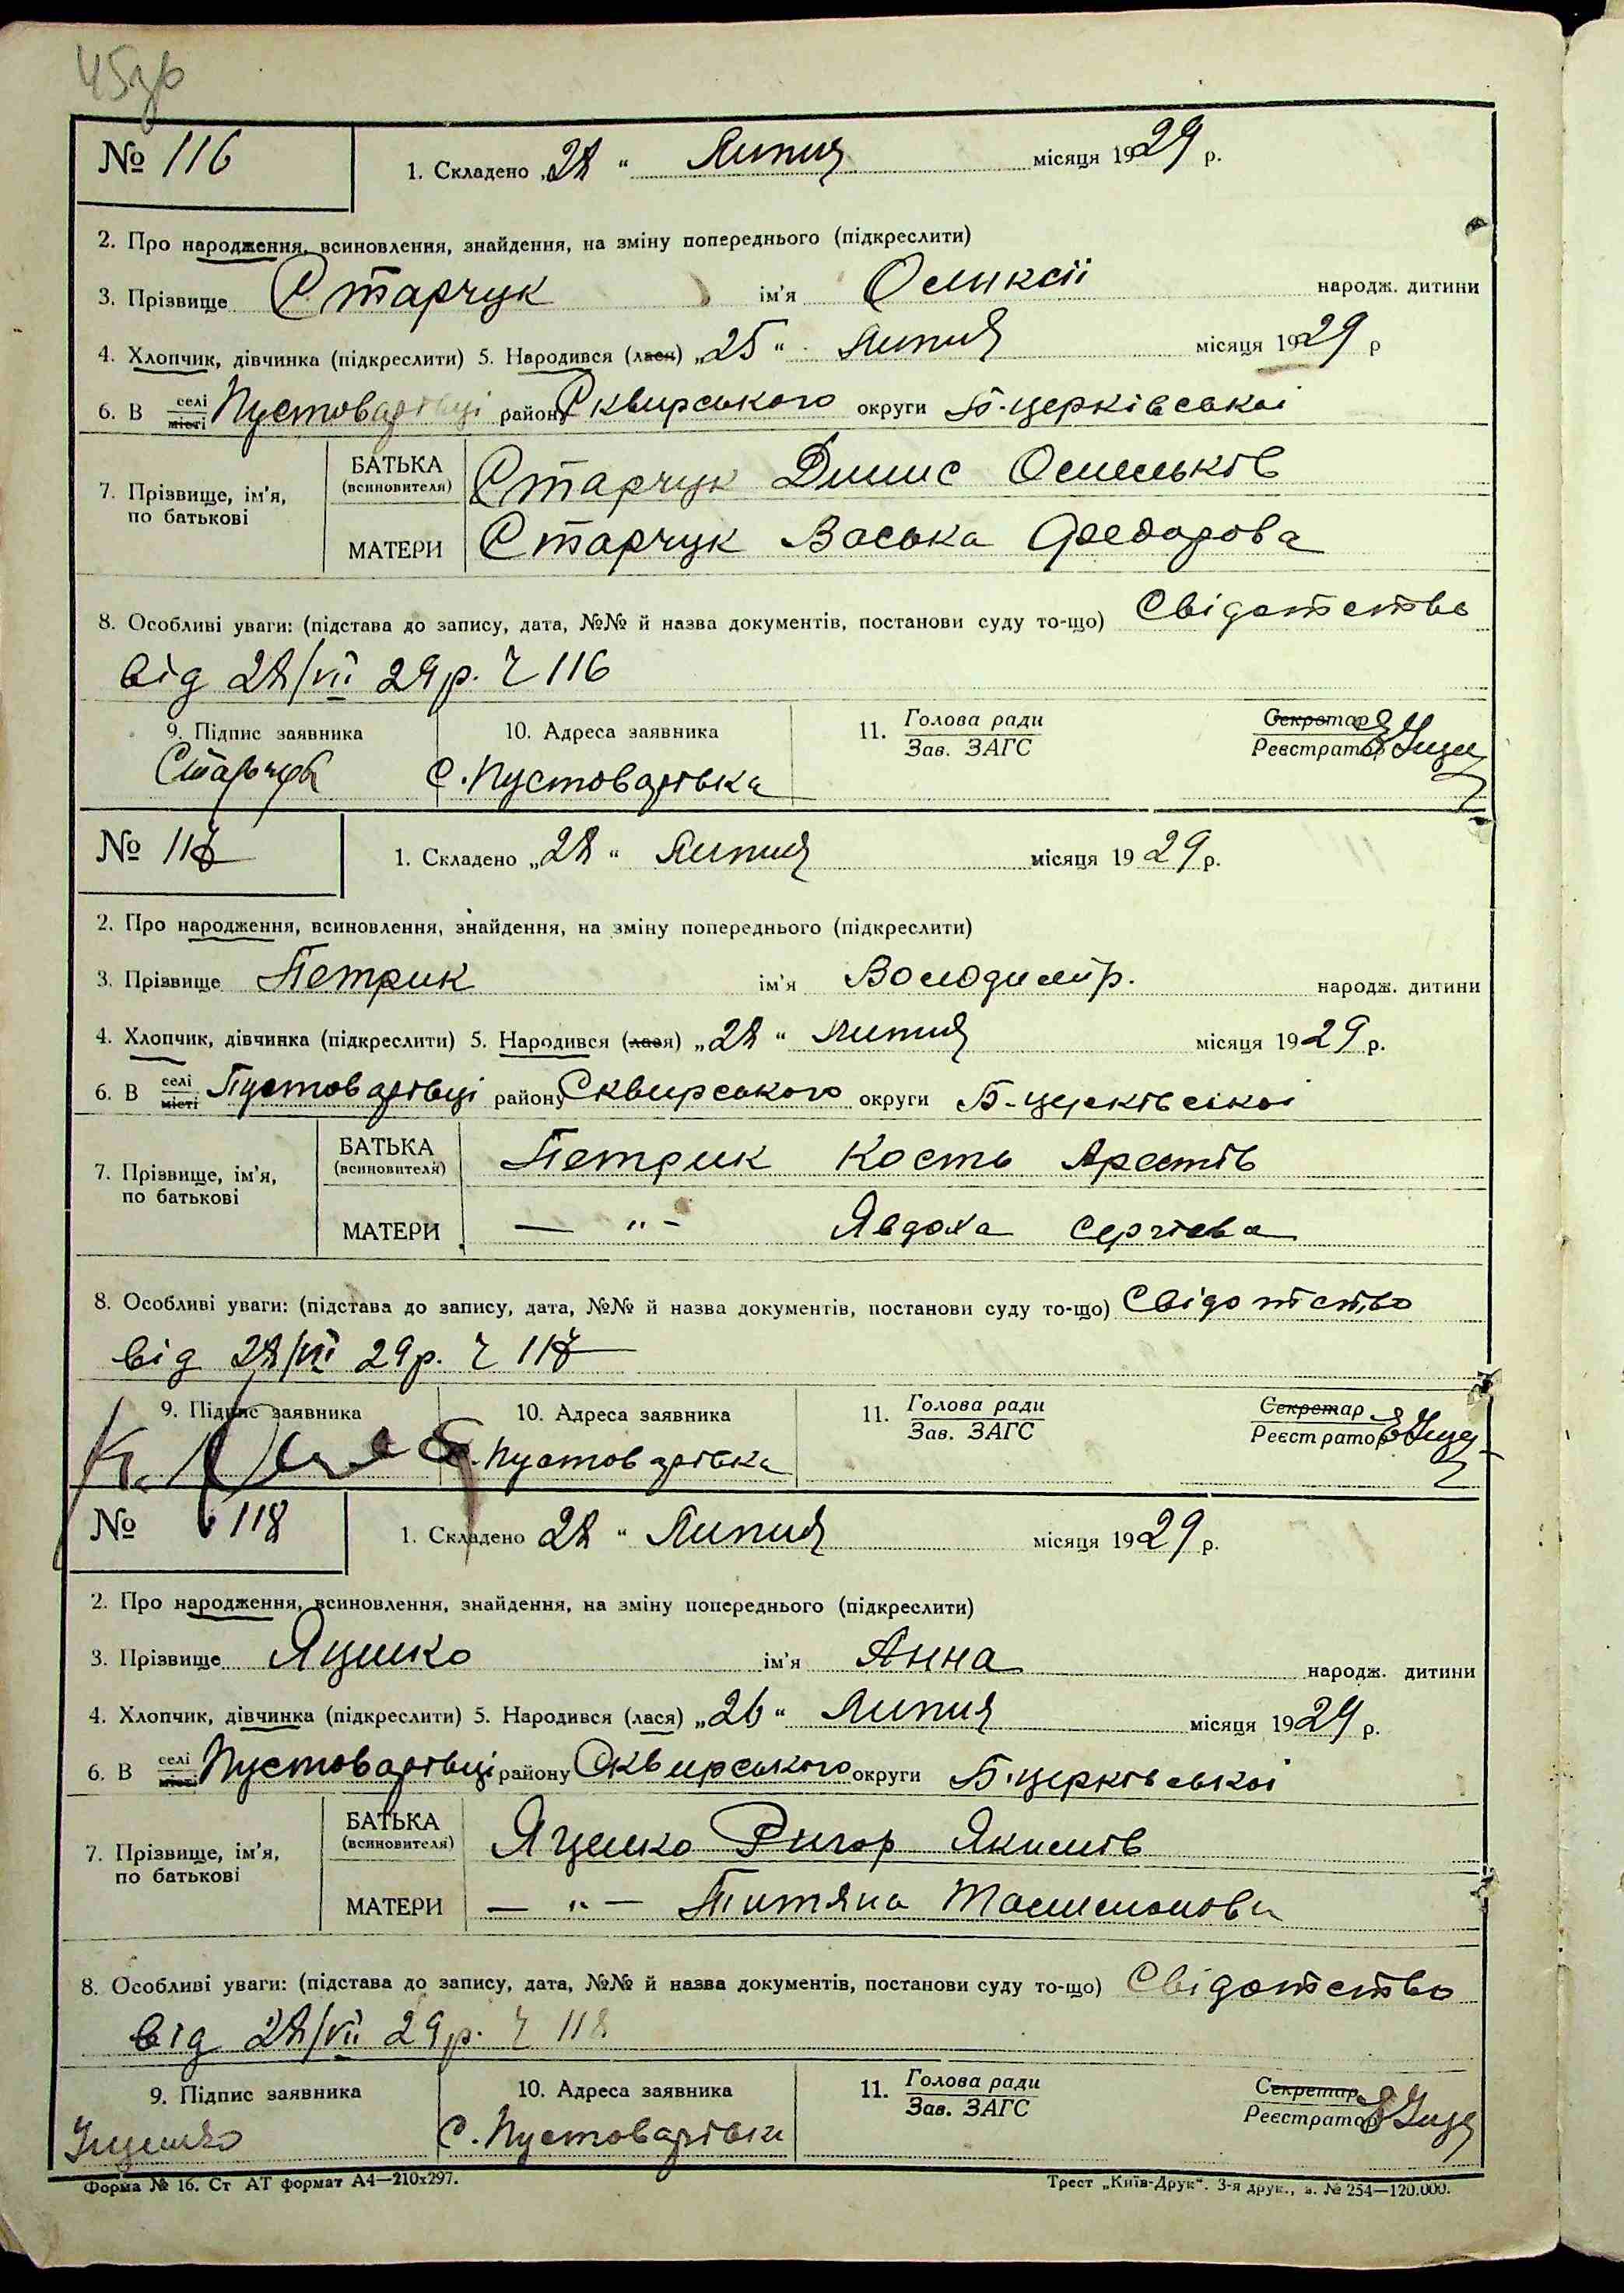 45зв
№ 116
1. Складено „28“ Липня місяця 1929 р.
2. Про народження, всиновлення, знайдення, на зміну попереднього (підкреслити)
3. Прізвище Старчук ім'я Оликсій народж. дитини
4. Хлопчик, дівчинка (підкреслити) 5. Народився (лася) „25“ Липня місяця 1929 р
6. В селі місті Пустоварівці району Сквирського округи Б-церківської
7. Прізвище, ім'я, по батькові
БАТЬКА (всиновителя) Старчук Динис Омельків
МАТЕРИ Старчук Васька Федорова
8. Особливі уваги: (підстава до запису, дата, №№ й назва документів, постанови суду то-що) Свідотство
від 28/VII 29р. Ч 116
9. Підпис заявника 10. Адреса заявника 11. Голова ради Зав. ЗАГС Секретар Реєстратор
Старчук С. Пустоварівка
№ 117
1. Складено „28“ Липня місяця 1929 р.
2. Про народження, всиновлення, знайдення, на зміну попереднього (підкреслити)
3. Прізвище Петрик ім'я Володимир. народж. дитини
4. Хлопчик, дівчинка (підкреслити) 5. Народився (лася) „28“ Липня місяця 1929 р.
6. В селі місті Пустоварівці району Сквирського округи Б-церківської
7. Прізвище, ім'я, по батькові
БАТЬКА (всиновителя) Петрик Кость
МАТЕРИ — „ — Явдоха Сергієва
8. Особливі уваги: (підстава до запису, дата, №№ й назва документів, постанови суду то-що) Свідотство
від 28/VII 29р. Ч 117
9. Підпис заявника 10. Адреса заявника 11. Голова ради Зав. ЗАГС Секретар Реєстратор
С. Пустоварівка
№ 118
1. Складено 28“ Липня місяця 1929 р.
2. Про народження, всиновлення, знайдення, на зміну попереднього (підкреслити)
3. Прізвище Яценко ім'я Анна народж. дитини
4. Хлопчик, дівчинка (підкреслити) 5. Народився (лася) „26“ Липня місяця 1929 р.
6. В селі місті Пустоварівці району Сквирського округи Б-церківської
7. Прізвище, ім'я, по батькові
БАТЬКА (всиновителя) Яценко Ригор Якимів
МАТЕРИ — „ — Титяна
8. Особливі уваги: (підстава до запису, дата, №№ й назва документів, постанови суду то-що) Свідотство
від 28/VII 29р. Ч 118
9. Підпис заявника 10. Адреса заявника 11. Голова ради Зав. ЗАГС Секретар Реєстратор
С. Пустоварівка
Форма № 16. Ст АТ формат А4—210х297. Трест „Київ-Друк“. 3-я друк., з. № 254—120.000.